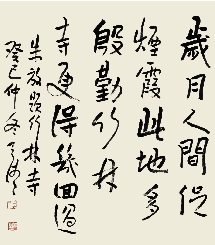 歲月人間促
煙霞此地多
殷勤竹林
寺更得幾回過
朱放題竹林寺
癸巳仲冬